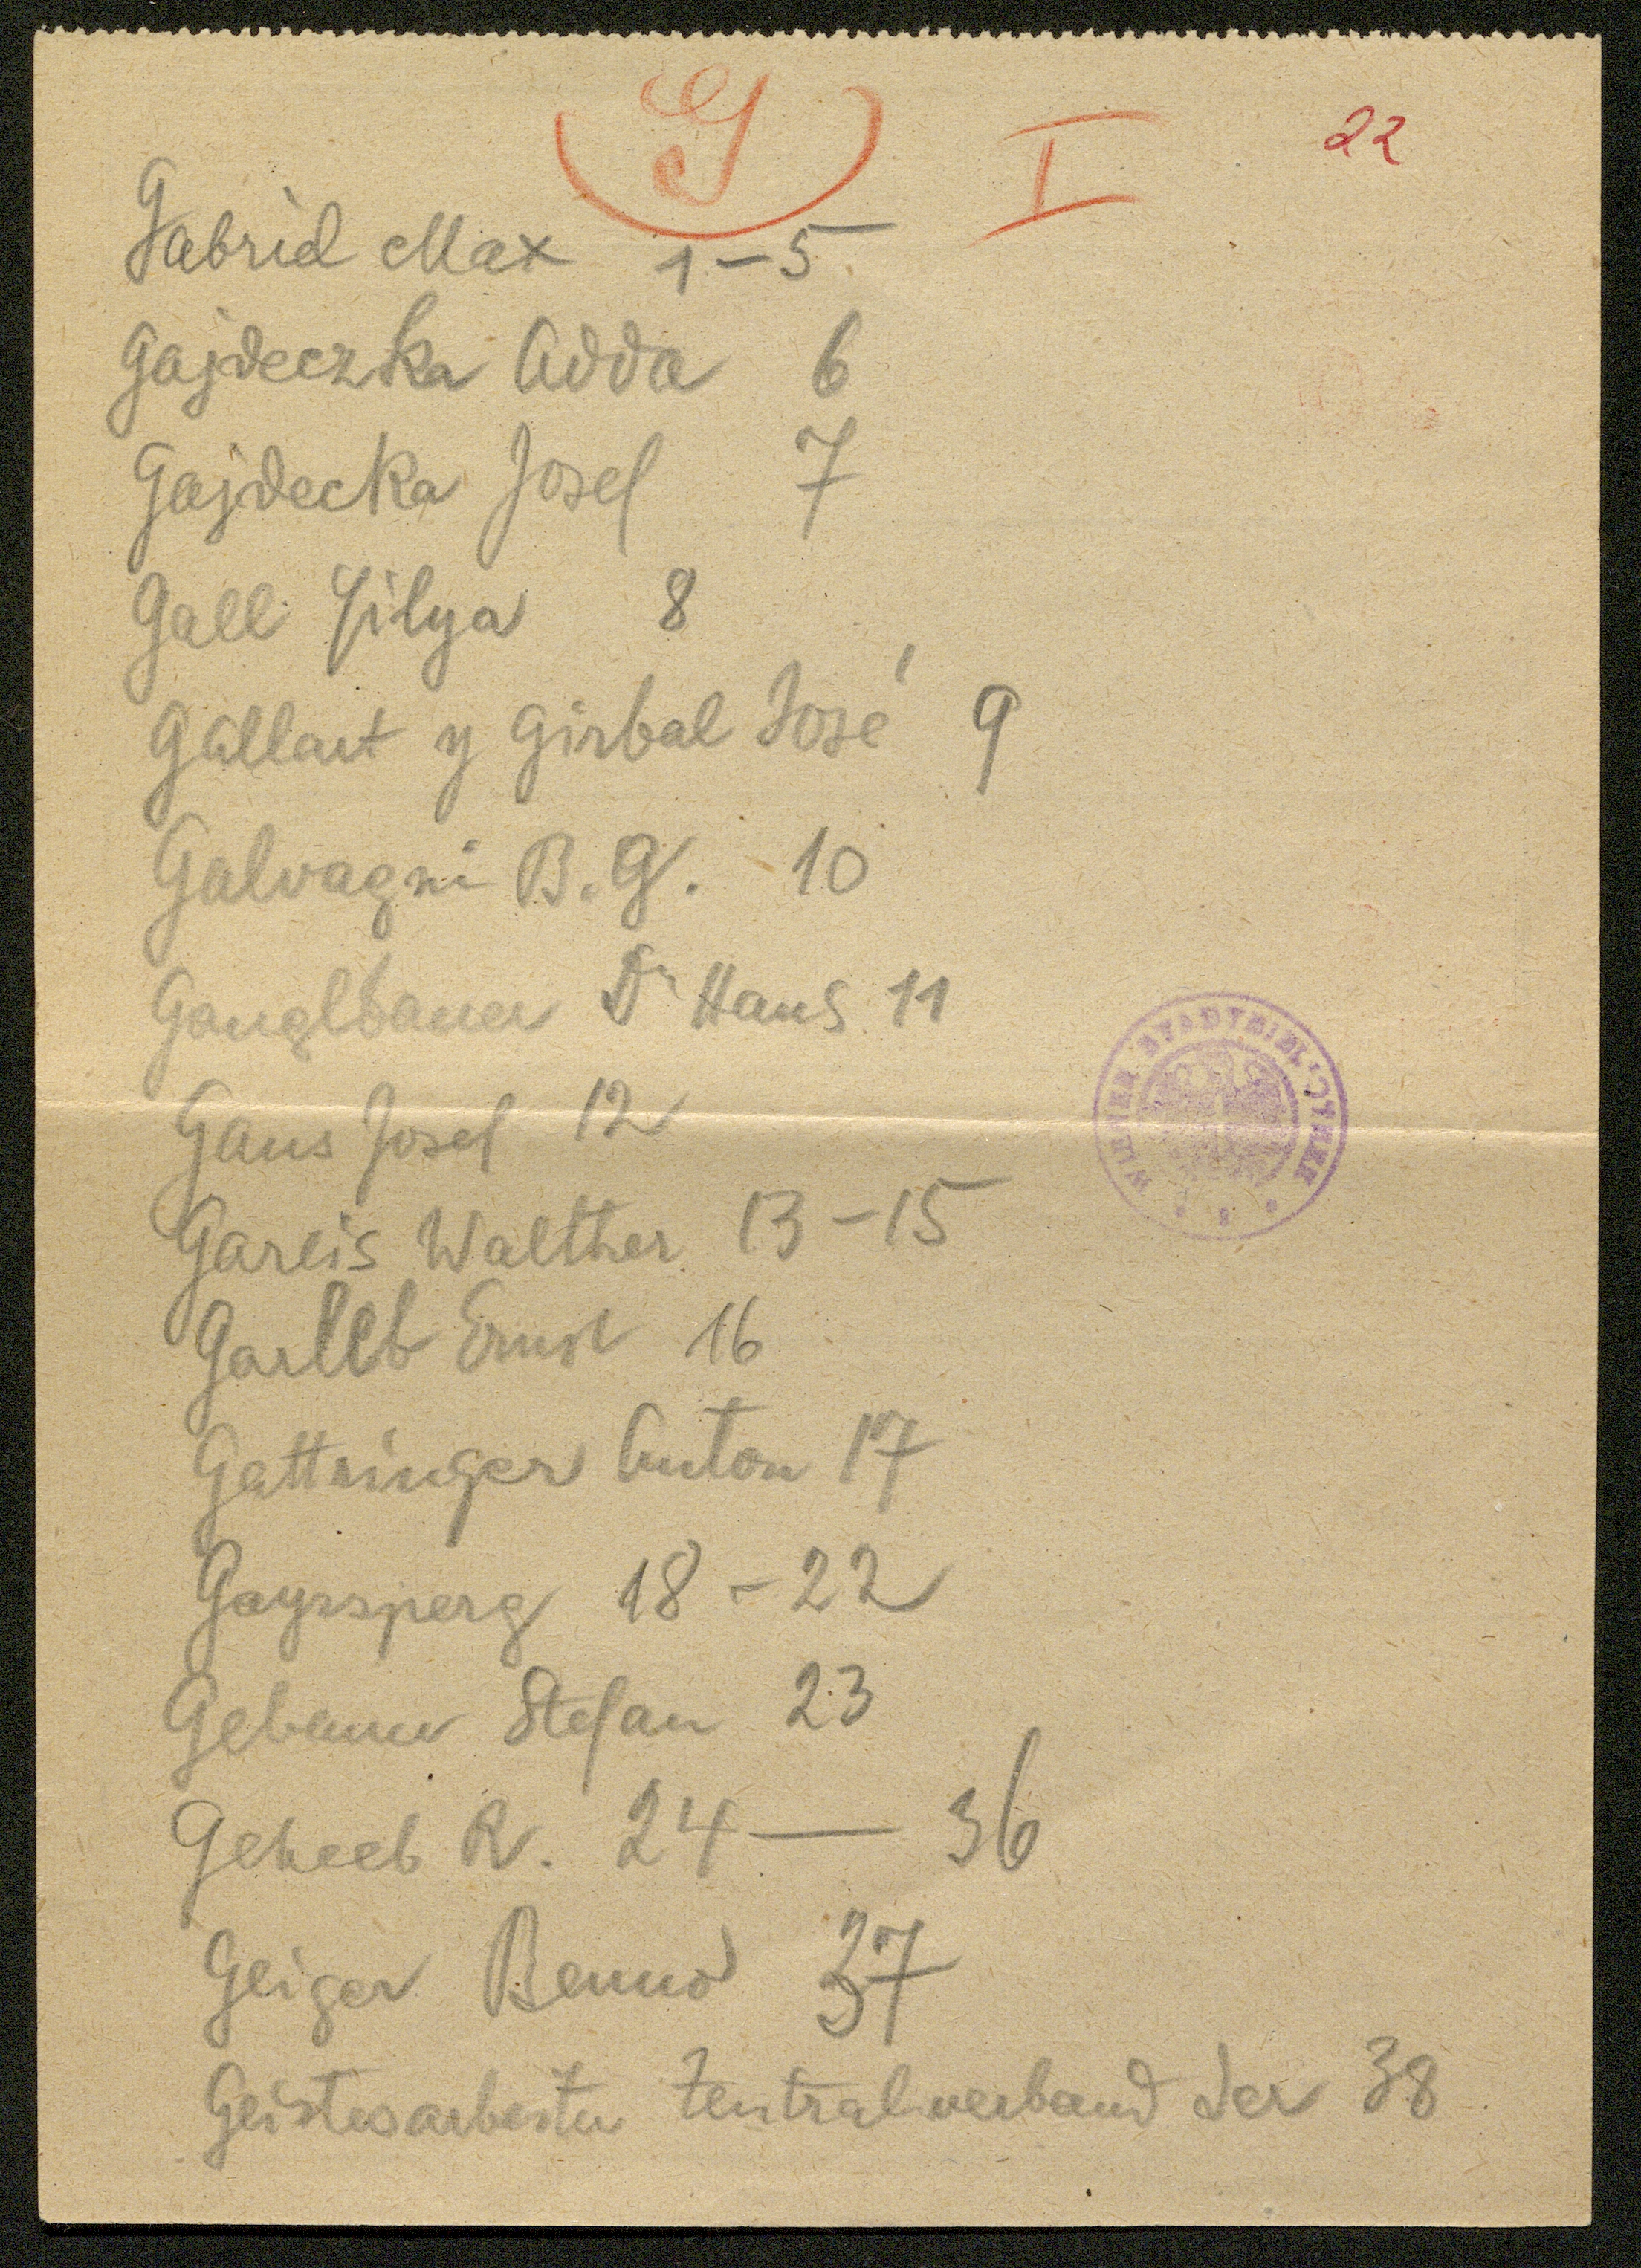 G I 22
Gabriel Max 1-5
Gajdeczka Adda 6
Gajdecka Josef 7
Gall Jilya 8
Gallart y Girbal José 9
Galvagni B. G. 10
Ganglbauer Dr Hans 11
Gans Josef 12
Gareis Walther 13-15
Garleb Ernst 16
Gattringer Anton 17
Gayrsperg 18-22
Gebauer Stefan 23
Geheeb R. 24 — 36
Geiger Benno 37
Geistesarbeiter Zentralverband der 38
WIENER STADTBIBLIOTHEK